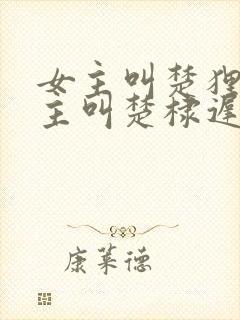 女主叫楚狸
主叫楚棣遲
康莱德